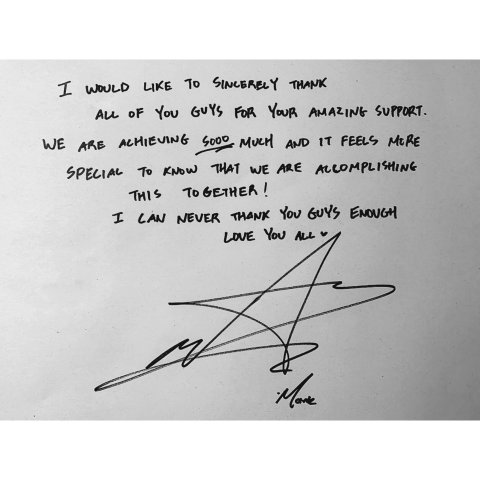 I WOULD LIKE TO SINCERELY THANK
ALL OF YOU GUYS FOR YOUR AMAZING SUPPORT.
WE ARE ACHIEVING SOOO MUCH AND IT FEELS MORE
SPECIAL TO KNOW THAT WE ARE ACCOMPLISHING
THIS TOGETHER!
I CAN NEVER THANK YOU GUYS ENOUGH
LOVE YOU ALL ♥